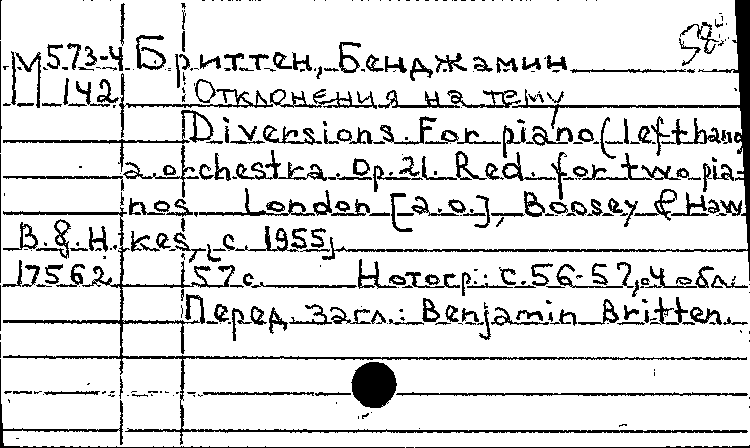 58
М 573-4 Бриттен, Бенджамин
142 Отклонения на тему
Diversions. For piano (left hand
a. orchestra. Op. 21. Red. for two pia-
nos London [a.o.], Boosey & Haw
B. & H. kes, [c. 1955].
17562 57 с. Нотогр.: с. 56-57, 4 обл.
Перед загл.: Benjamin Britten.